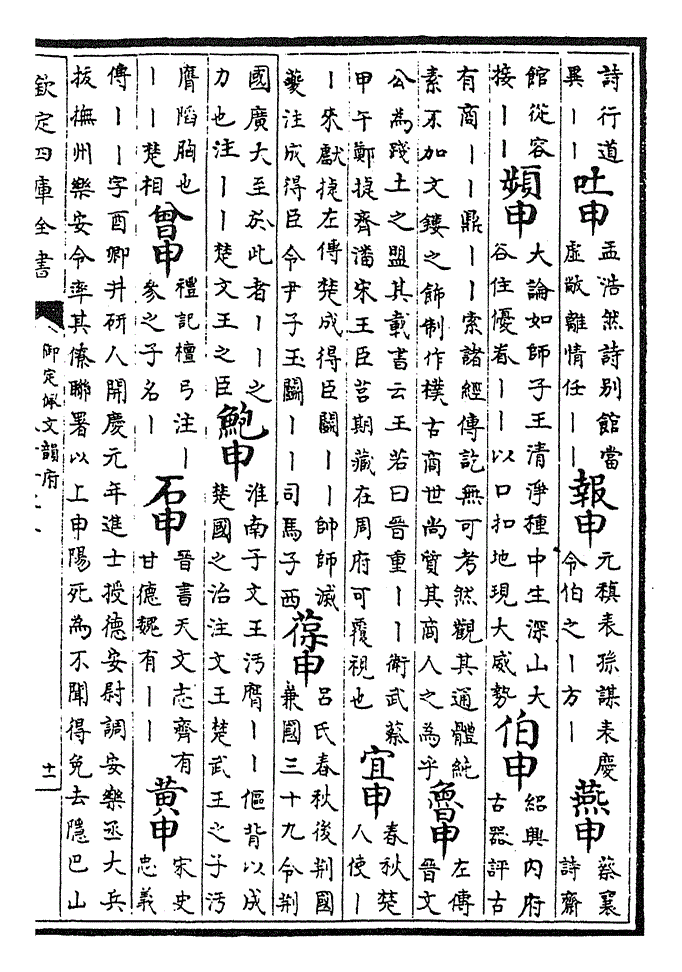 詩行道
異丨丨
吐申
孟浩然詩別館當
虛敞離情任丨丨
報申
元稹表孫謀表慶
令伯之丨方丨
燕申
蔡襄
詩齋
館從容
接丨丨
頻申
大論如師子王清淨種中生深山大
谷住優眷丨丨以口扣地現大威勢
伯申
紹興內府
古器評古
有商丨丨鼎丨丨索諸經傳訖無可考然觀其通體純
素不加文鏤之飾制作樸古商世尚質其商人之為乎
魯申
左傳
晉文
公為踐土之盟其載書云王若曰晉重丨丨衛武蔡
甲午鄭捷齊潘宋王臣莒期藏在周府可覆視也
宜申
春秋楚
人使丨
丨來獻捷左傳楚成得臣鬭丨丨帥師滅
夔注成得臣令尹子玉鬭丨丨司馬子西
葆申
呂氏春秋後荆國
兼國三十九令荆
國廣大至於此者丨丨之
力也注丨丨楚文王之臣
鮑申
淮南子文王汚膺丨丨傴背以成
楚國之治注文王楚武王之子汚
膺䧟胸也
丨丨楚相
曾申
禮記檀弓注丨
參之子名丨
石申
晉書天文志齊有
甘德魏有丨丨
黃申
宋史
忠義
傳丨丨字酉卿井研人開慶元年進士授德安尉調安樂丞大兵
拔撫州樂安令率其僚聯署以上申陽死為不聞得免去隱巴山
欽定四庫全書
御定佩文韻府
十一